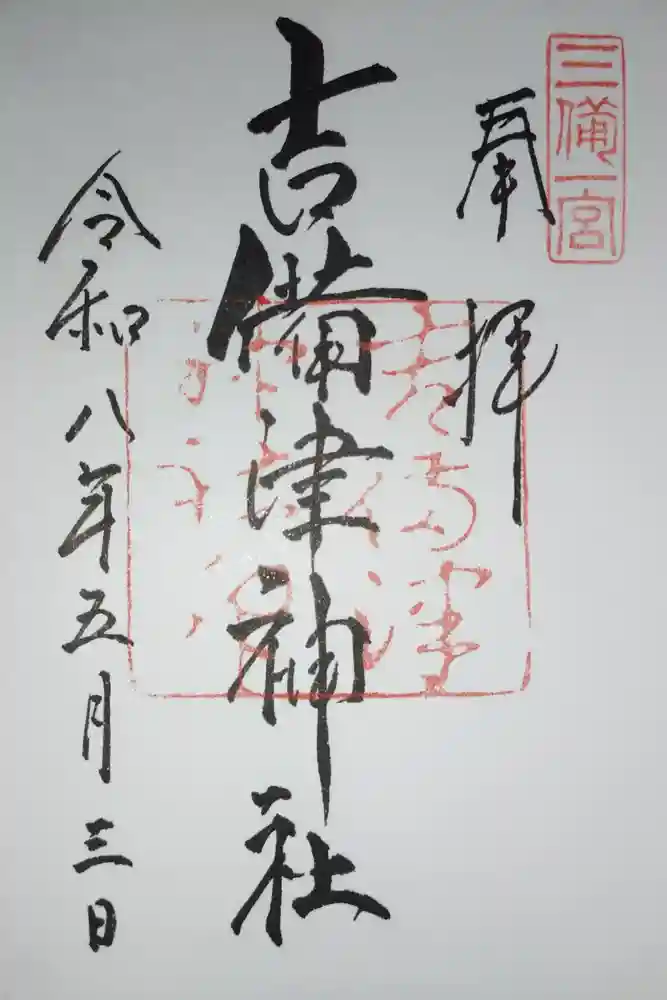 三備一宮
奉拝
吉備津神社
令和八年五月三日